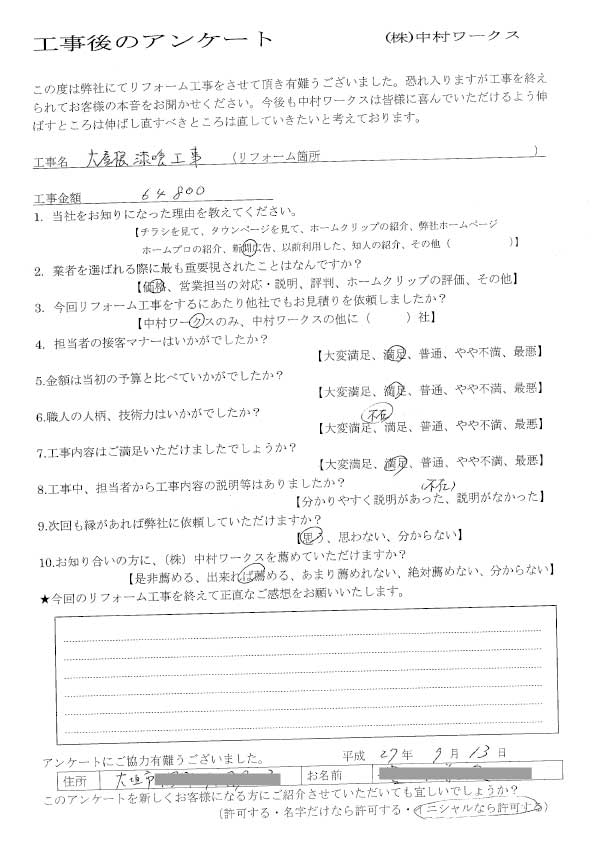 工事後のアンケート　(株)中村ワークス
この度は弊社にてリフォーム工事をさせて頂き有難うございました。恐れ入りますが工事を終え
られてお客様の本音をお聞かせください。今後も中村ワークスは皆様に喜んでいただけるよう伸
ばすところは伸ばし直すべきところは直していきたいと考えております。
工事名　大屋根漆喰工事　(リフォーム箇所　)
工事金額　64800
1. 当社をお知りになった理由を教えてください。
【チラシを見て、タウンページを見て、ホームクリップの紹介、弊社ホームページ
ホームプロの紹介、新聞広告、以前利用した、知人の紹介、その他（　）】
2. 業者を選ばれる際に最も重要視されたことはなんですか？
【価格、営業担当の対応・説明、評判、ホームクリップの評価、その他】
3. 今回リフォーム工事をするにあたり他社でもお見積りを依頼しましたか？
【中村ワークスのみ、中村ワークスの他に（　）社】
4. 担当者の接客マナーはいかがでしたか？
【大変満足、満足、普通、やや不満、最悪】
5.金額は当初の予算と比べていかがでしたか？
【大変満足、満足、普通、やや不満、最悪】
6.職人の人柄、技術力はいかがでしたか？
不在
【大変満足、満足、普通、やや不満、最悪】
7.工事内容はご満足いただけましたでしょうか？
【大変満足、満足、普通、やや不満、最悪】
8.工事中、担当者から工事内容の説明等はありましたか？
(不在)
【分かりやすく説明があった、説明がなかった】
9.次回も縁があれば弊社に依頼していただけますか？
【思う、思わない、分からない】
10.お知り合いの方に、（株）中村ワークスを薦めていただけますか？
【是非薦める、出来れば薦める、あまり薦めれない、絶対薦めない、分からない】
★今回のリフォーム工事を終えて正直なご感想をお願いいたします。
アンケートにご協力有難うございました。　平成 27年 9月 13日
住所　大垣市　お名前
このアンケートを新しくお客様になる方にご紹介させていただいても宜しいでしょうか？
（許可する・名字だけなら許可する・イニシャルなら許可する）